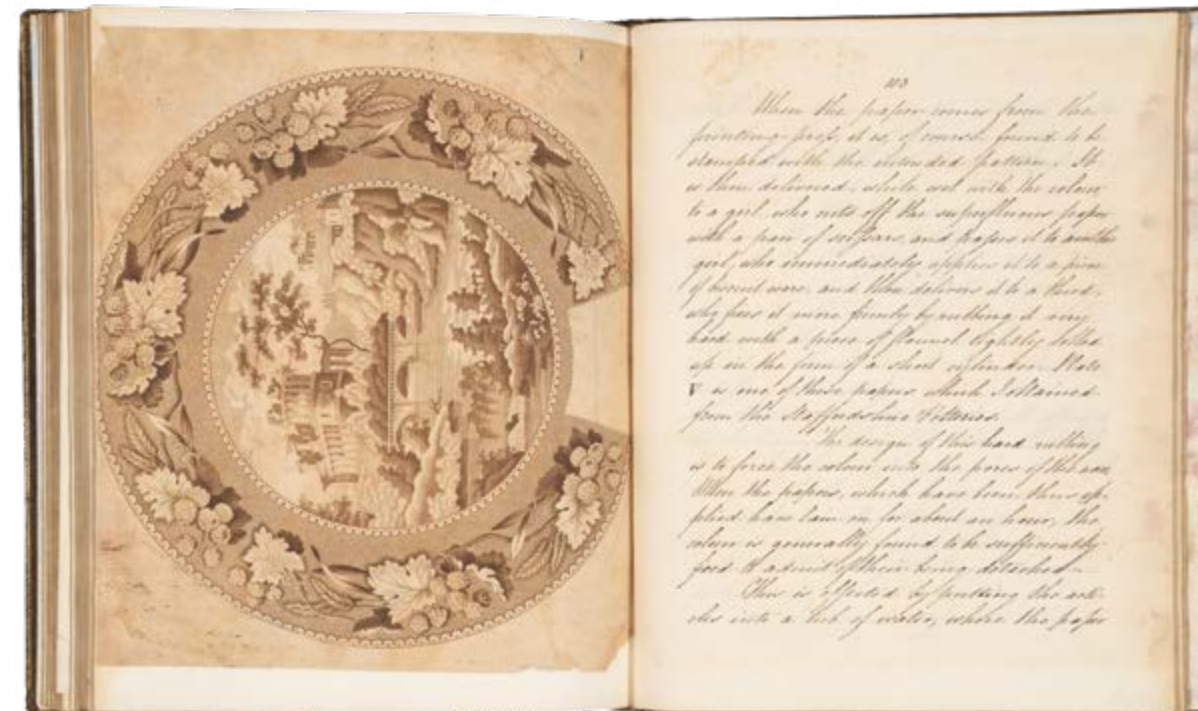 113
When the paper comes from the
printing-press, it is, of course, found to be
stamped with the intended pattern. It
is then delivered, while wet with the colour
to a girl, who cuts off the superfluous paper
with a pair of scissars, and passes it to another
girl, who immediately applies it to a piece
of biscuit ware, and then delivers it to a third,
who fixes it more firmly by rubbing it very
hard with a piece of flannel tightly rolled
up in the form of a short cylinder. Plate
V is one of these papers which I obtained
from the Staffordshire Potteries.
The design of this hard rubbing
is to force the colour into the pores of the ware
When the papers, which have been thus ap-
plied have lain on for about an hour, the
colour is generally found to be sufficiently
fixed to admit of their being detached.
This is effected by putting the arti-
cles into a tub of water, where the paper